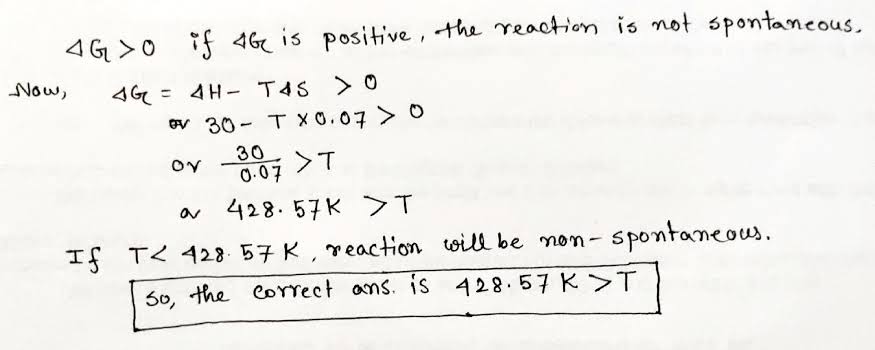 ΔG > 0 if ΔG is positive, the reaction is not spontaneous.
Now, ΔG = ΔH - TΔS > 0
or 30 - T × 0.07 > 0
or 30/0.07 > T
or 428.57K > T
If T < 428.57 K, reaction will be non-spontaneous.
So, the correct ans. is 428.57 K > T